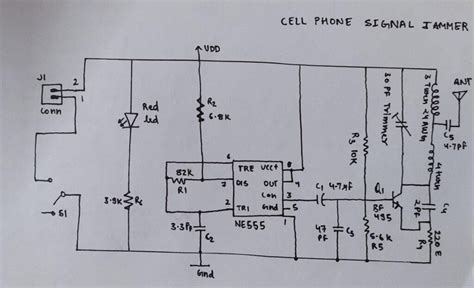 CELL PHONE SIGNAL JAMMER
VDD
J1
2
1
Conn
Red
led
R2
6.8K
30 PF Trimmer
3 Turn 24 AWG
ANT
C5
4.7PF
R3 10K
4 turn
82K
R1
6
7
2
TRE
DIS
TRI
VCC+
OUT
Con
Gnd
8
4
3
5
1
NE555
C1 4.7µF
Q1
BF
495
C4
2PF
3.9K
R6
S1
3.3PF
C2
47
PF
C3
5.6K
R5
220 E
R4
Gnd